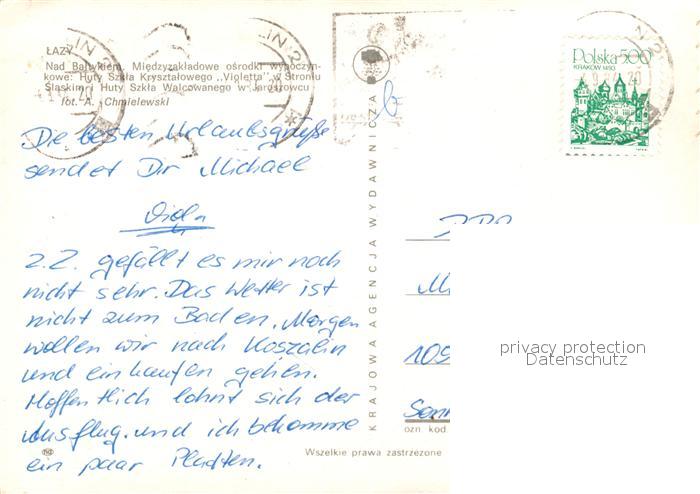 ŁAZY
Nad Bałtykiem. Międzyzakładowe ośrodki wypoczyn-
kowe: Huty Szkła Kryształowego „Violetta" w Stroniu
Śląskim i Huty Szkła Walcowanego w Jaroszowcu
fot. A. Chmielewski
Die besten Urlaubsgrüße
sendet Dir Michael
z.Z. gefällt es mir noch
nicht sehr. Das Wetter ist
nicht zum Baden. Morgen
wollen wir nach Koszalin
und einkaufen gehen.
Hoffentlich lohnt sich der
Ausflug und ich bekomme
ein paar Platten.
KRAJOWA AGENCJA WYDAWNICZA
Polska 500
KRAKÓW 1493
DDR
109
privacy protection
Datenschutz
ozn. kod
Wszelkie prawa zastrzeżone